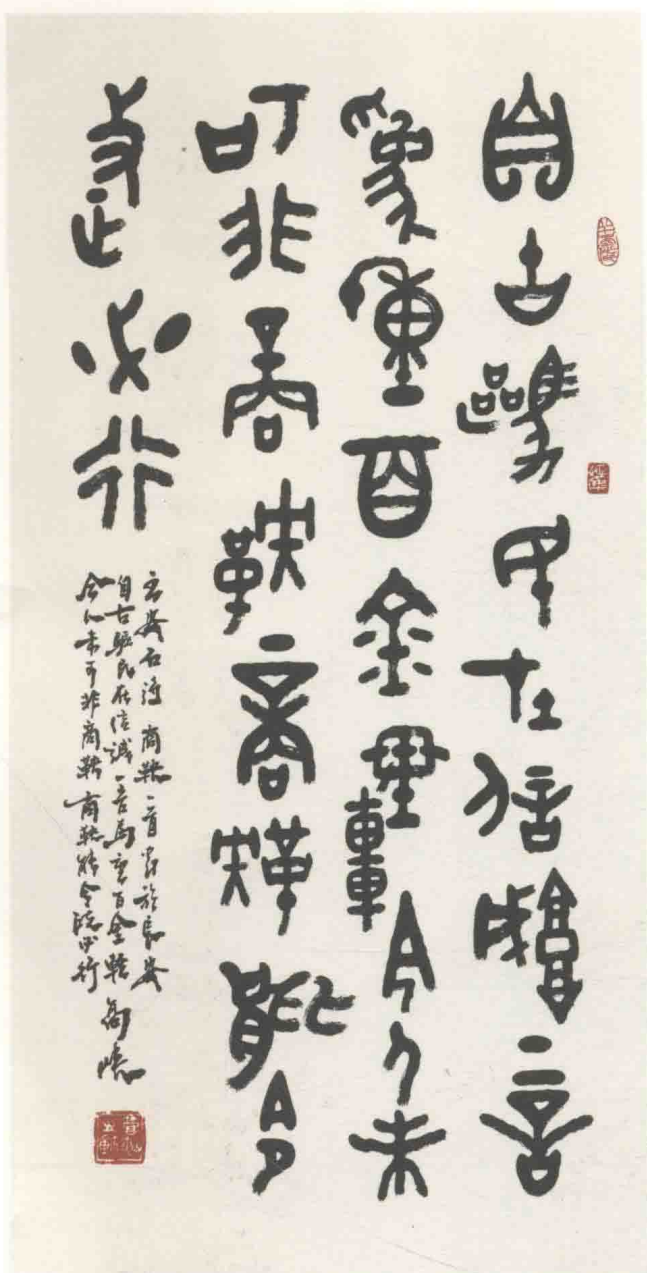 自古驅民在信誠一言
為重百金輕今人未
可非商鞅商鞅能令
政必行
王安石詩商鞅一首書於長安
自古驅民在信誠一言為重百金輕
今人未可非商鞅商鞅能令政必行